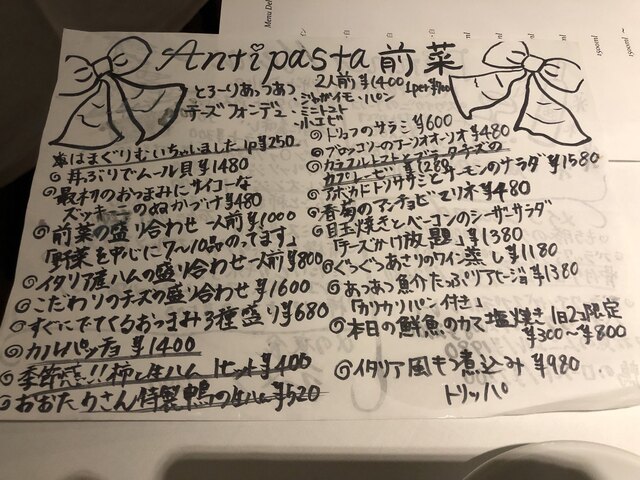 Antipasta 前菜
とろーりあつあつ
チーズフォンデュ
2人前 ¥1400
・ジャガイモ・パン
・ミニトマト
・小エビ
1per ¥700
※はまぐりむいちゃいました 1p ¥250
◎丼ぶりでムール貝 ¥1480
◎最初のおつまみにサイコーな
ズッキーニのぬかづけ ¥480
◎前菜の盛り合わせ一人前 ¥1000
「野菜を中心に7〜10品のってます」
◎イタリア産ハムの盛り合わせ一人前 ¥800
◎こだわりのチーズの盛り合わせ ¥1600
◎すぐにでてくるおつまみ3種盛り ¥680
◎カルパッチョ ¥1400
◎季節感!!柿と生ハム 1セット ¥400
◎おおたりさん特製鴨の生ハム ¥520
◎トリュフのサラミ ¥600
◎ブロッコリーのアーリオオーリオ ¥480
◎カラフルトマトと チーズの
カプレーゼ ¥1280
◎アボカドトリササミとサーモンのサラダ ¥1580
◎春菊のアンチョビマリネ ¥480
◎目玉焼きとベーコンのシーザーサラダ
「チーズかけ放題」 ¥1380
◎ぐつぐつあさりのワイン蒸し ¥1180
◎あつあつ魚介たっぷりアヒージョ ¥1380
「カリカリパン付き」
◎本日の鮮魚のカマ塩焼き 1日2コ限定
¥300〜¥800
◎イタリア風もつ煮込み ¥980
トリッパ